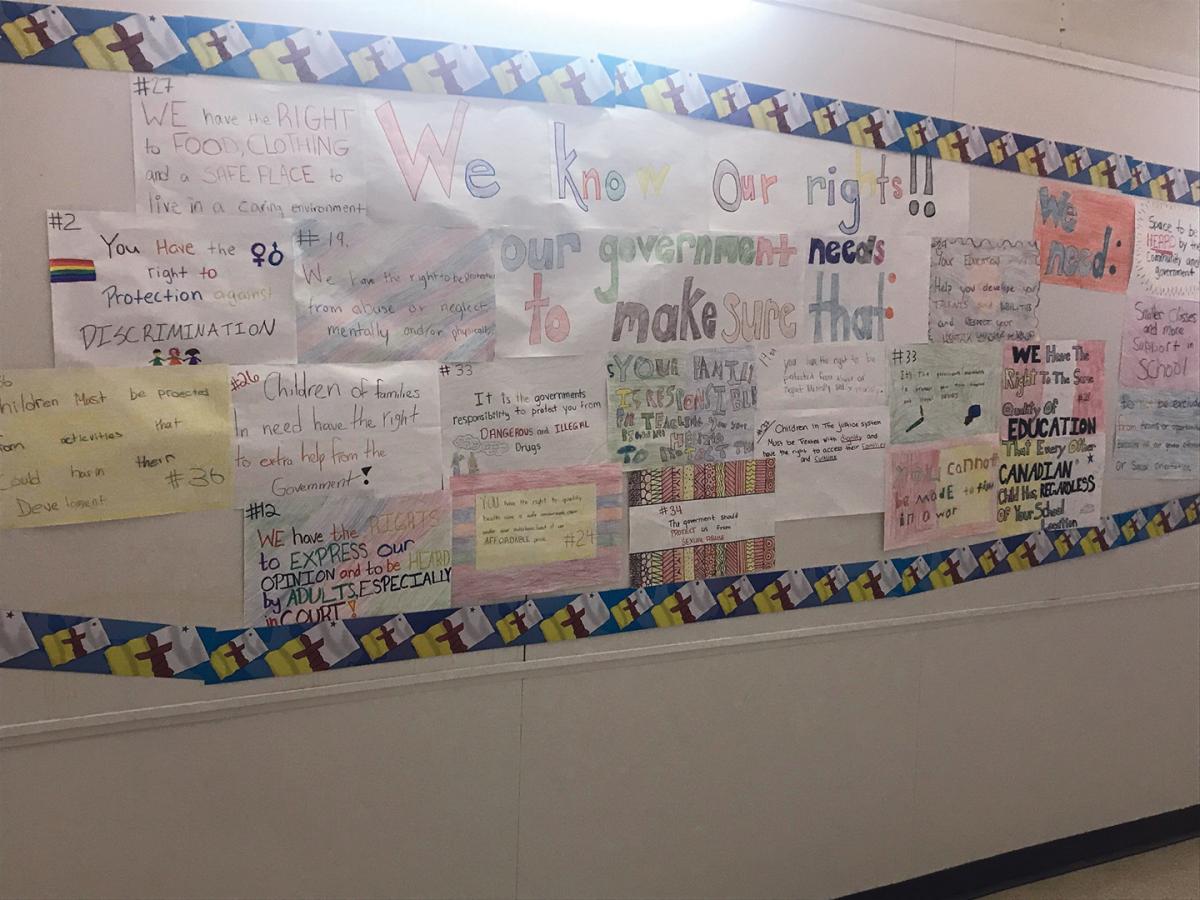 #27
WE have the RIGHT
to FOOD, CLOTHING
and a SAFE PLACE to
live in a caring environment
We know Our rights!!
our government needs
to make sure that:
#2
You Have the
right to
Protection against
DISCRIMINATION
#19.
We have the right to be protected
from abuse or neglect
mentally and/or physically
Help you develope your
TALENTS and ABILITIES
and RESPECT your
We
need:
Space to be
HEARD by
Community and
government
Smaller Classes
and more
Support in
School
to be exclude
from
or Sexual orientation
Children Must be protected
from activities that
Could harm their
Develoment #36
#26
Children of families
In need have the Right
to extra help from the
Government!
#33
It is the governments
responsibility to protect you from
DANGEROUS and ILLEGAL
Drugs
5
YOUR FAMILY
IS RESPONSIBLE
you have the right to be
Children in The justice system
Must be Treated with Dignity and
have the right to access their Families
and Culture
#33
WE Have The
Right To The Same
Quality Of
EDUCATION
That Every Other
CANADIAN
Child Has, REGARDLESS
Of Your School
Location
You cannot
be made to
in a war
#12
WE have the RIGHTS
to EXPRESS OUR
OPINION and to be HEARD
by ADULTS, ESPECIALLY
in COURT!
YOU have the right to quality
health care
AFFORDABLE price. #24
#34
The goverment should
Protect us From
SEXUAL ABUSE